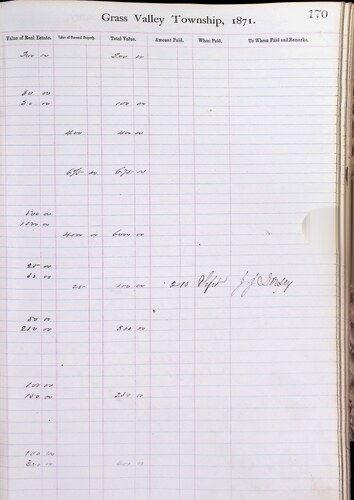 Grass Valley Township, 1871.
170
Value of Real Estate. Value of Personal Property. Total Value. Amount Paid. When Paid. To Whom Paid and Remarks.
200 00 200 00
50 00
50 00 100 00
400 400 00
675 00 675 00
500 00
1500 00
4000 00 6000 00
25 00
50 00
25 100 00 2.10
50 00
250 00 300 00
100 00
150 00 250 00
100 00